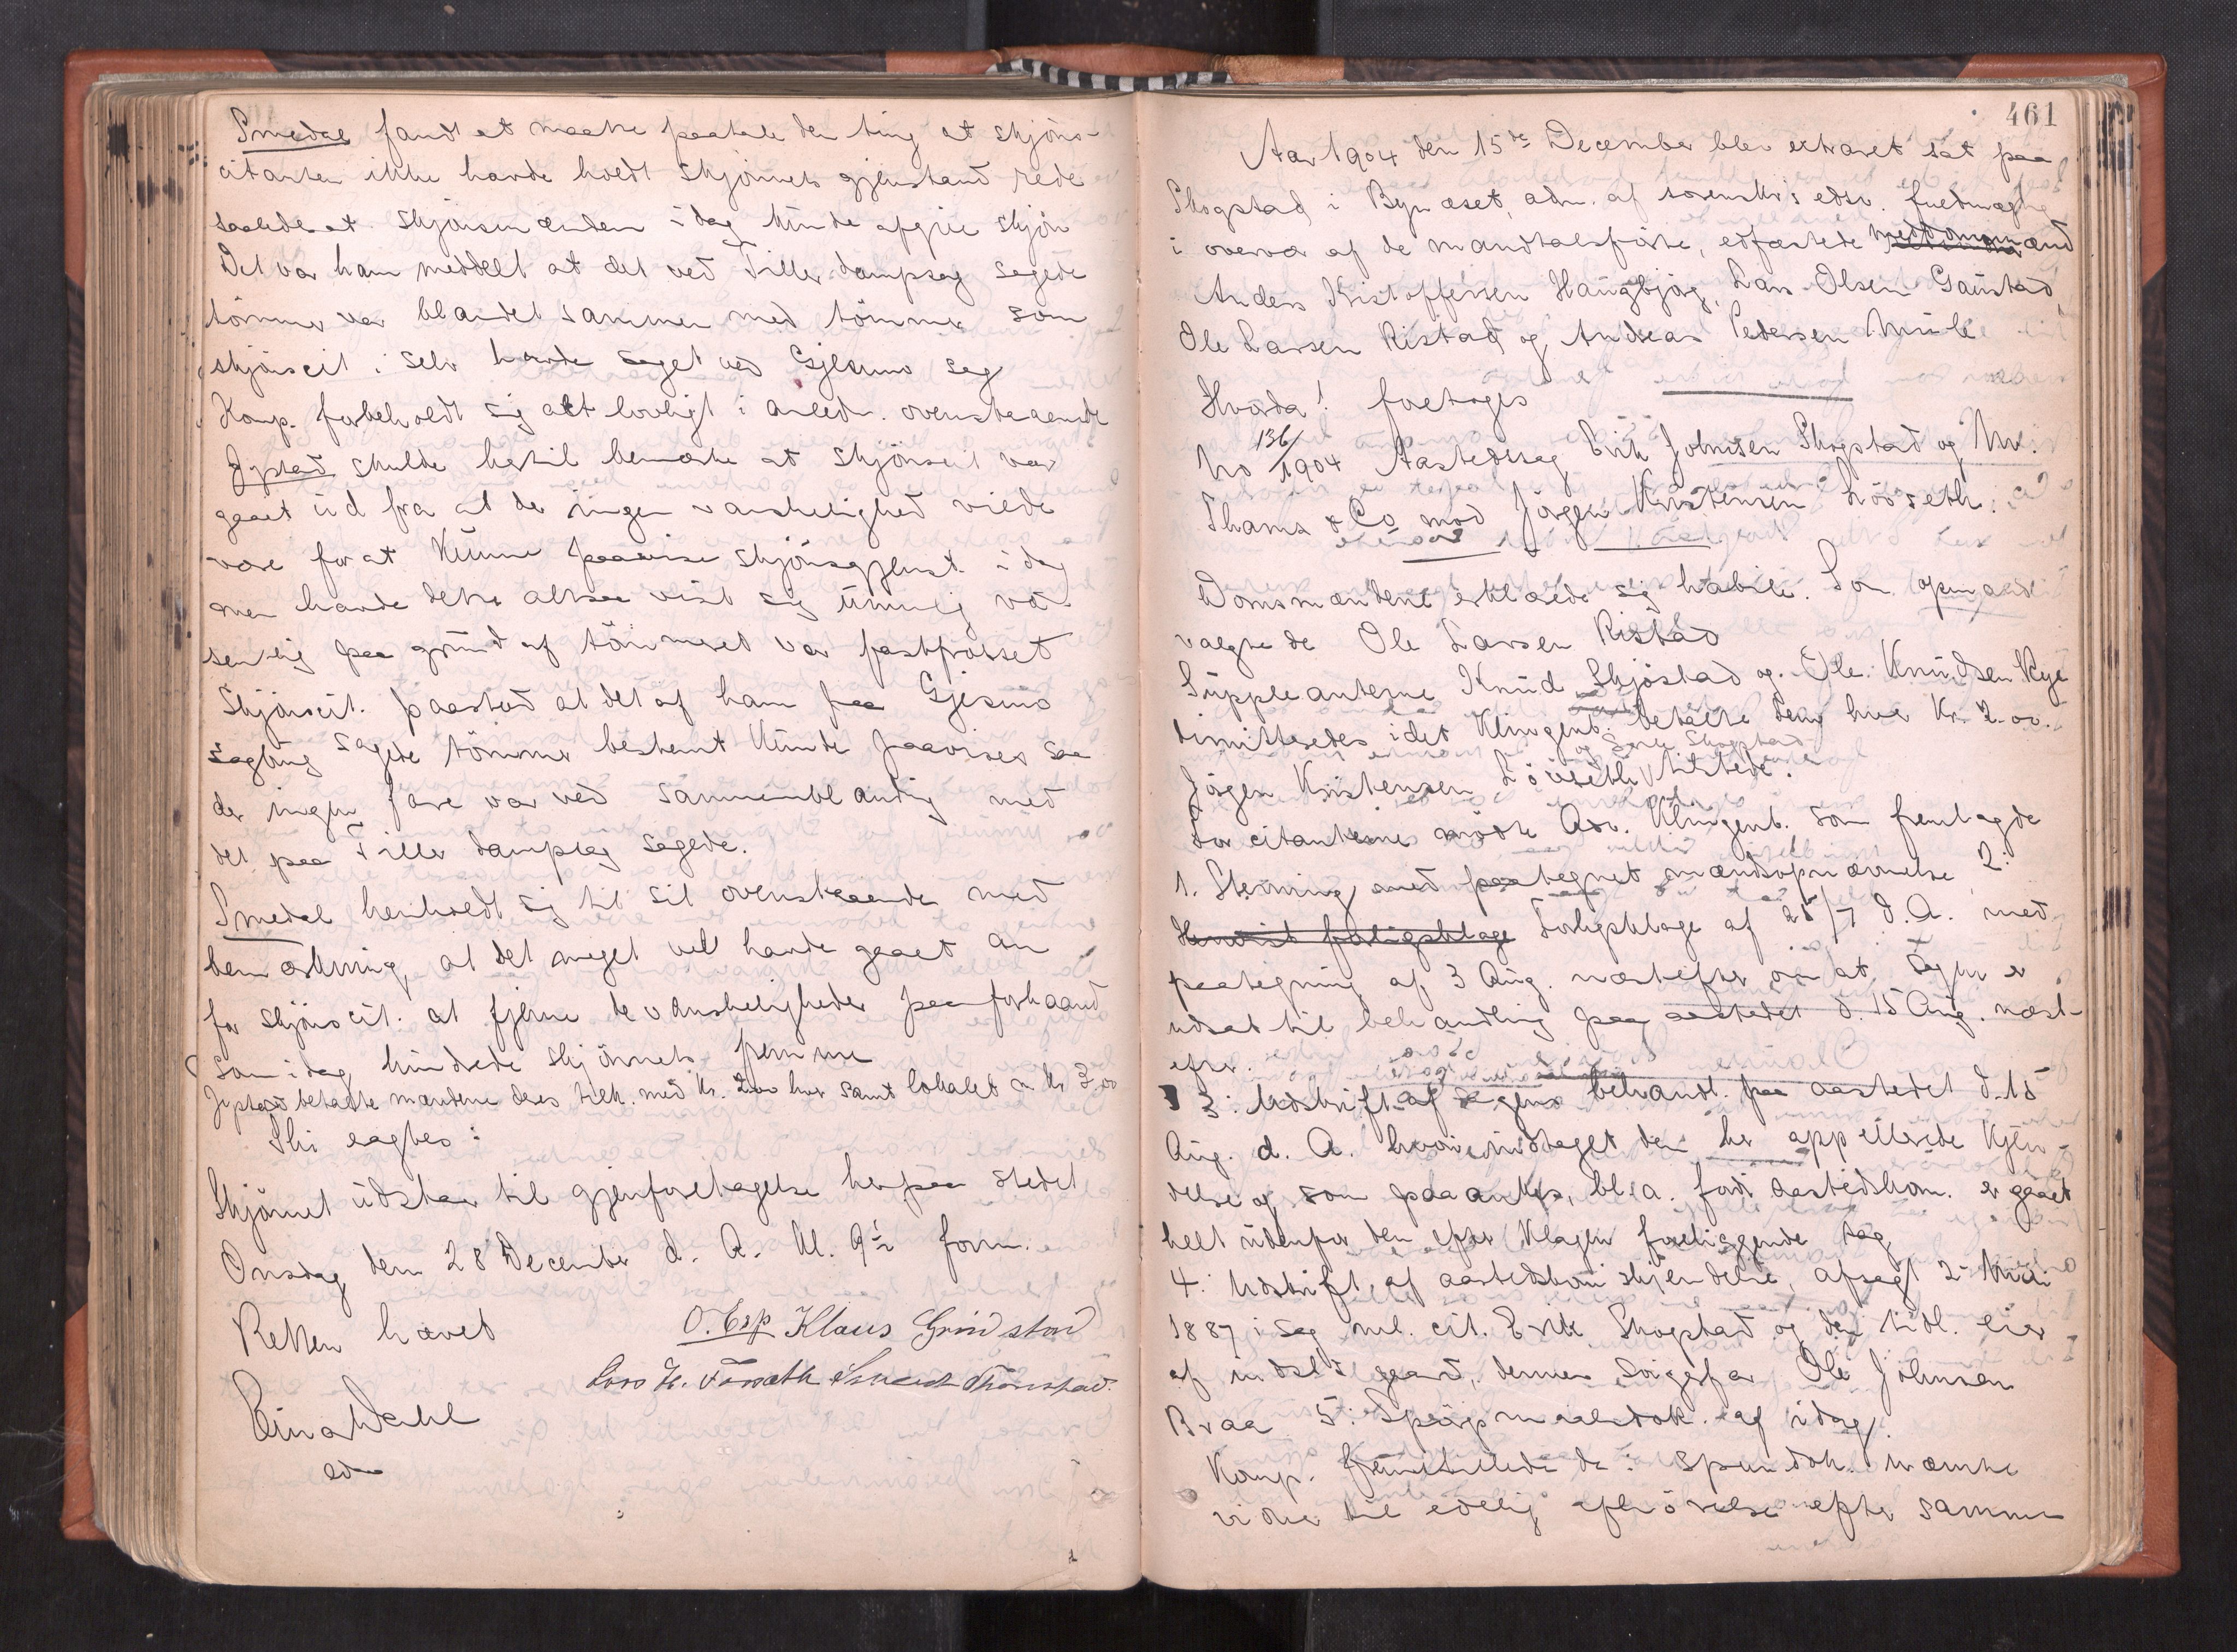 Smedal fandt at maatte paatale den ting at skjöns-
citanten ikke havde holdt skjönnets gjenstand rede
saaledes at skjönsmændene idag kunde afgive skjön
Det var ham meddelt at det ved Tiller dampsag sagede
tömmer var blandet sammen med tömmer som
skjönscit. selv havde saget ved Gjesmo sag
Komp. forbeholdt sig alt lovligt i anledn. ovenstaaende
Jystad skulde hertil bemærke at skjönscit var
gaaet ud fra at der ingen vanskelighed vilde
være for at kunne paavise skjönsgjenst. idag
men havde dette altsaa vist sig umulig væ-
sentlig paa grund af tömmeret var fastfrosset
Skjönscit. paastod at det af ham paa Gjesmo
sagbrug sagede tömmer bestemt kunde paavises saa
der ingen fare var ved sammenblanding med
det paa Tiller dampsag sagede.
Smedal henholdt sig til sit ovenstaaende med
bemærkning, at det meget vel havde gaaet an
for skjönscit. at fjerne de vanskeligheder paa forhaand
som idag hindrede skjönnets fremme
Jystad betalte mændene deres tilk. med Kr. 2.00 hver samt lokalet m. Kr 3.00
Thi eragtes:
Skjönnet udstaar til gjenforetagelse her paa stedet
Onsdag den 28 December d. A. kl. 9½ form.
Retten hævet
O. Esp Klaus Grindstad
Lars H.
Einar Dahl
edsv
461
Aar 1904 den 15de December blev extraret sat paa
Skogstad i Bynæset, adm. af sorenskr's edsv. fuldmægtig
i overvær af de mandtalsförte, edfæstede meddomsmænd
Anders Kristoffersen Haugbjörg, Lars Olsen Gaustad,
Ole Larsen Ristad og Andreas Pedersen Mule
Hvorda! foretoges
No 136/1904 Aastedssag Erik Johnsen Skogstad og M.
Thams & Co mod Jörgen Kristensen Lövseth.
Domsmændene erklærede sig habile. Som opmand
valgte de Ole Larsen Ristad
Suppleanterne Knud Skjöstad og Ole Knudsen Rye
dimitteredes idet Klingenb. betalte dem hver Kr. 2.00.
og Skogstad
Jörgen Kristensen Lövseth tilstede.
For citanterne mödte Adv. Klingenb. som fremlagde
1. Stevning med paategnet mændsopnævnelse 2:
Forligsklage af 25/7 d.A. med
paategning af 3 Aug. næstefter om at sagen er
udsat til behandling paa aastedet d. 15 Aug. næst-
efter.
3: Udskrift af sagens behandl. paa aastedet d. 15
Aug. d. A. hvori indtaget den her appellerede kjen-
delse og som paaankes, bl.a. fordi aastedskom. er gaaet
helt udenfor den efter klagen foreliggende sag
4: Udskrift af aastedskom. skjendelse, afsagt 2 Mai
1887 i sag mel. cit. Erik Skogstad og den tidl. eier
af indst's gaard, dennes svigerfar Ole Johnsen
Braa 5: Spörgsmaalsdok. af idag.
Komp. fremstillede de i spm.dok. nævnte
vidner til edelig afhörelse efter samme